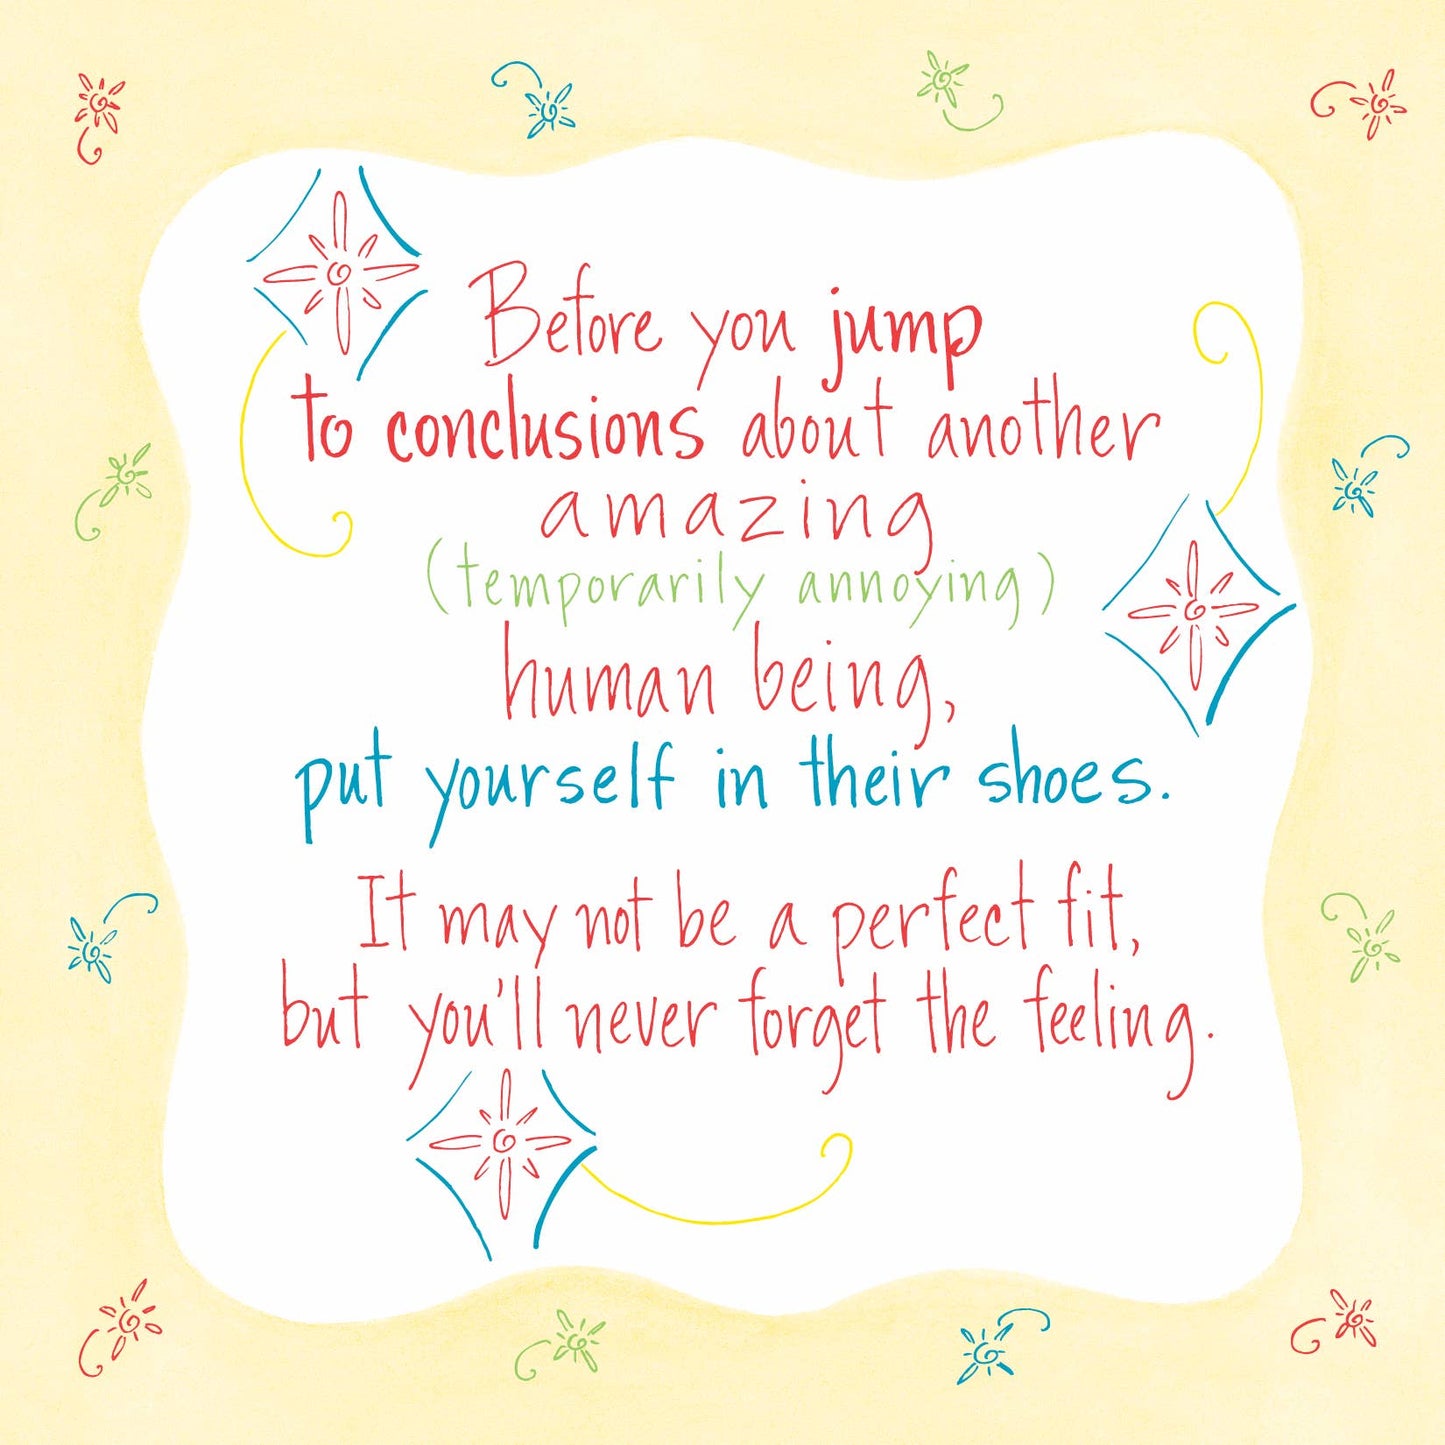 Before you jump
to conclusions about another
amazing
(temporarily annoying)
human being,
put yourself in their shoes.
It may not be a perfect fit,
but you'll never forget the feeling.